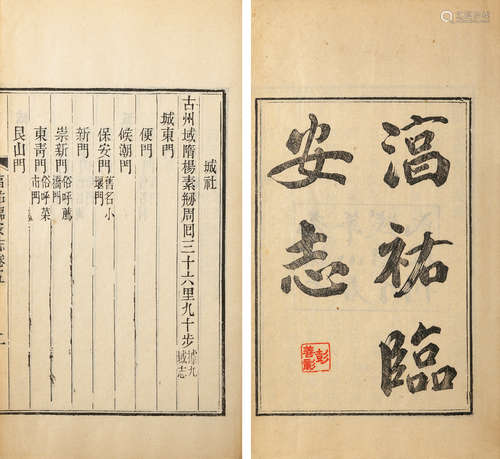 淳祐臨
安志
城社
古州城隋楊素刱周回三十六里九十步據九域志
城東門
便門
候潮門
保安門舊名小堰門
新門
崇新門俗呼薦橋門
東青門俗呼菜市門
艮山門